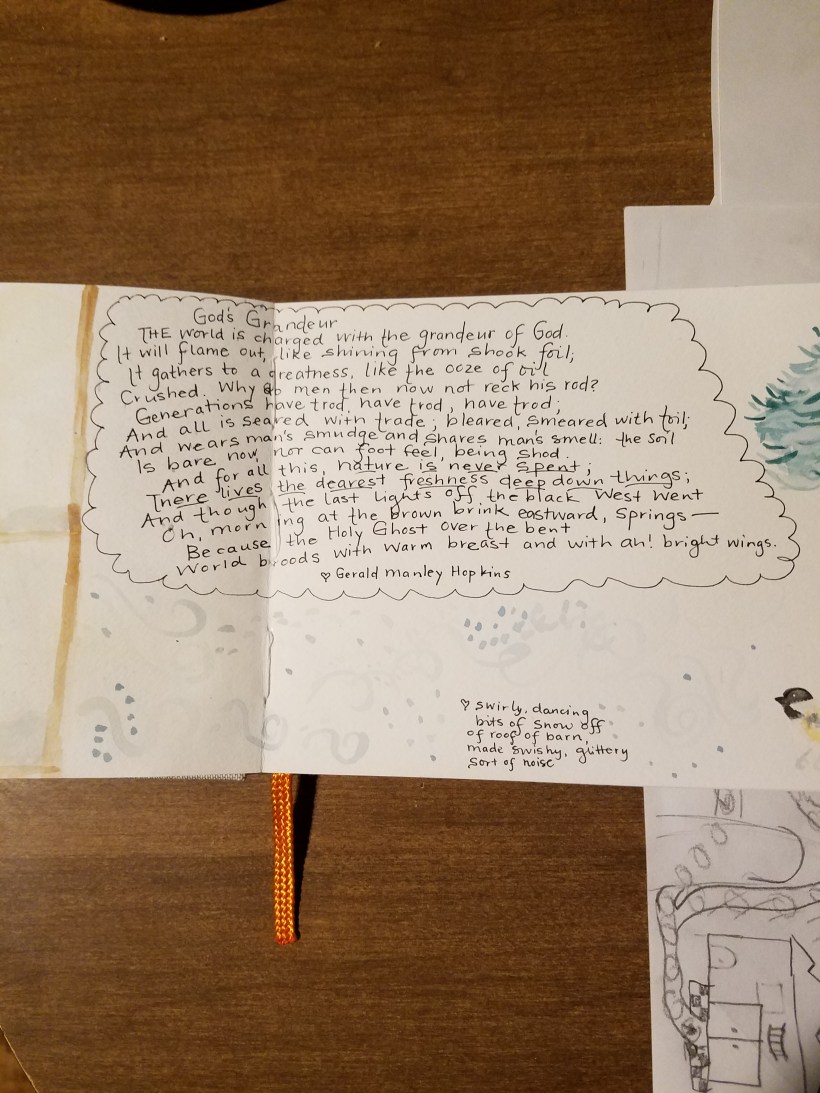 God's Grandeur
THE world is charged with the grandeur of God.
It will flame out, like shining from shook foil;
It gathers to a greatness, like the ooze of oil
Crushed. Why do men then now not reck his rod?
Generations have trod, have trod, have trod;
And all is seared with trade; bleared, smeared with toil;
And wears man's smudge and shares man's smell: the soil
Is bare now, nor can foot feel, being shod.
And for all this, nature is never spent;
There lives the dearest freshness deep down things;
And though the last lights off the black West went
Oh, morning at the brown brink eastward, springs—
Because the Holy Ghost over the bent
World broods with warm breast and with ah! bright wings.
♡ Gerald Manley Hopkins
♡ swirly, dancing
bits of snow off
of roof of barn,
made swishy, glittery
sort of noise